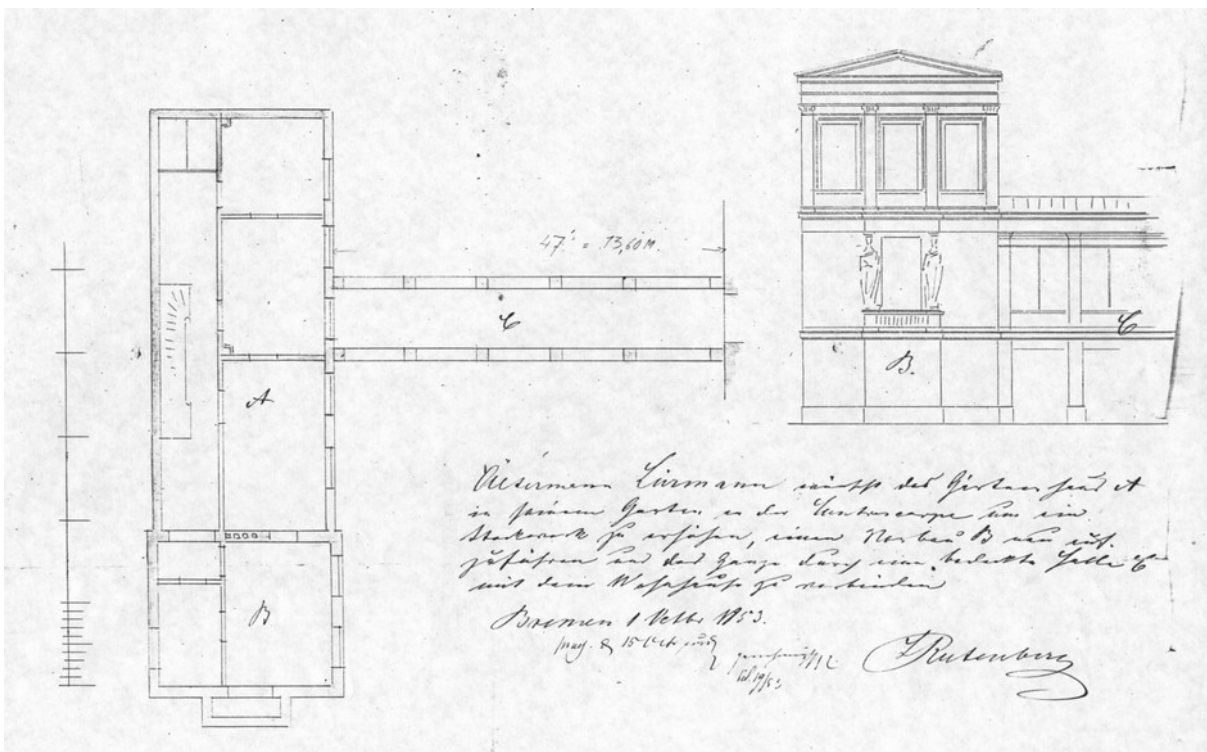 47' = 13,60 M.
C
C
B.
A
B
Aeltermann Lürmann wünscht das Gärtnerhaus A
in seinem Garten an der Contrescarpe um ein
Stockwerk zu erhöhen, einen Vorbau B neu auf-
zuführen und das Ganze durch eine bedeckte Halle C
mit dem Wohnhause zu verbinden
Bremen 1 Octbr 1853.
15 Oct
genehmigt
19/53
LRutenberg